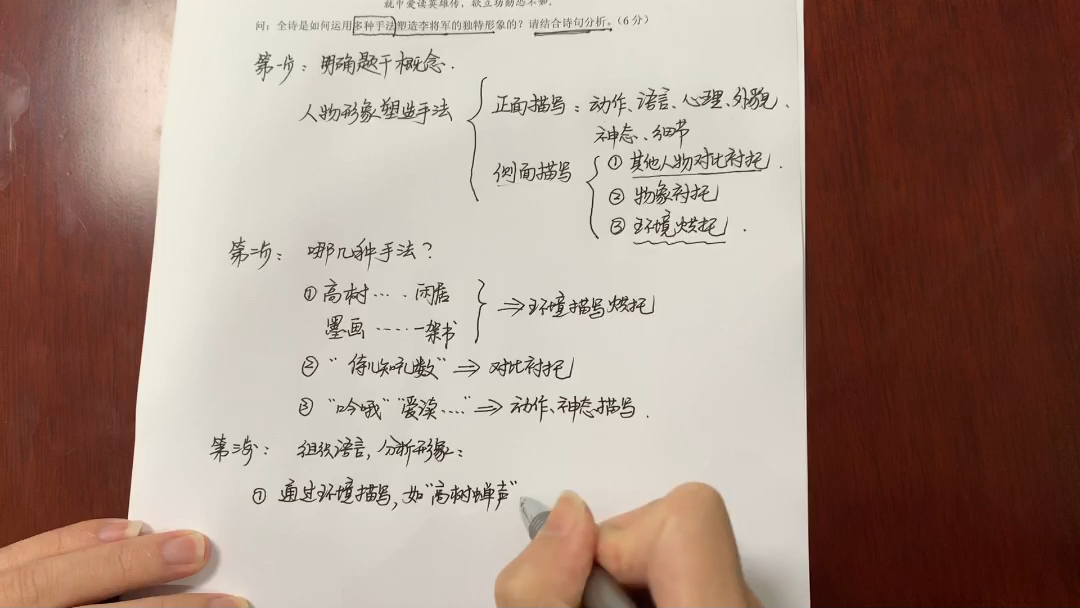 就中爱读英雄传，欲立功勋恐不如。
问：全诗是如何运用多种手法塑造李将军的独特形象的？请结合诗句分析。（6分）
第一步：明确题干概念.
人物形象塑造手法
正面描写：动作、语言、心理、外貌、
神态、细节
侧面描写
① 其他人物对比衬托.
② 物象衬托
③ 环境烘托.
第二步： 哪几种手法？
① 高树…. 闲居
墨画 ……一架书
⇒环境描写烘托
② “侍儿知礼数” ⇒ 对比衬托
③ “吟哦”“爱读….” ⇒ 动作、神态描写.
第三步： 组织语言，分析形象：
① 通过环境描写，如“高树蝉声”